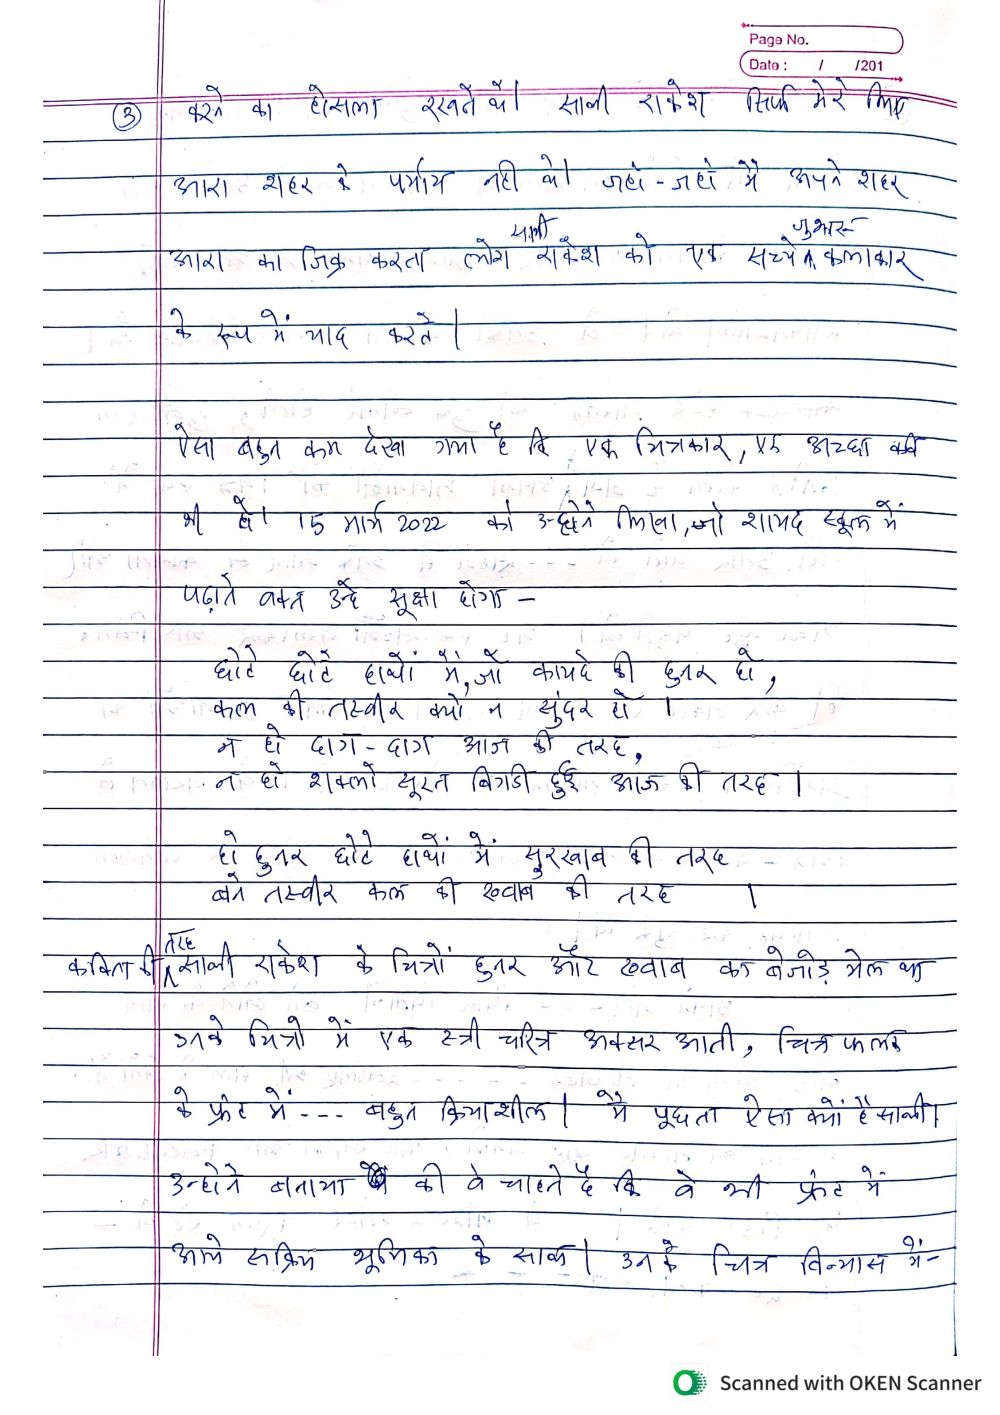 Page No.
Date : / /201
③ करने का हौसला रखते थे। साथी राकेश सिर्फ मेरे लिए
आरा शहर के पर्याय नहीं थे। जहाँ-जहाँ मैं अपने शहर
साथी जुझारू
आरा का जिक्र करता लोग राकेश को एक सच्चे कलाकार
के रूप में याद करते।
ऐसा बहुत कम देखा गया है कि एक चित्रकार, एक अच्छा कवि
भी हो। 15 मार्च 2022 को उन्होंने लिखा, जो शायद स्कूल में
पढ़ाते वक्त उन्हें सूझा होगा -
छोटे छोटे हाथों में, जो कायदे की हुनर हो,
कल की तस्वीर क्यों न सुंदर हो ।
न हो दाग-दाग आज की तरह,
न हो शक्लो सूरत बिगडी हुई आज की तरह ।
हो हुनर छोटे हाथों में सुरखाब की तरह
बने तस्वीर कल की ख्वाब की तरह ।
तरह
कविता की साथी राकेश के चित्रों हुनर और ख्वाब का बेजोड़ मेल था
उनके चित्रों में एक स्त्री चरित्र अक्सर आती, चित्र फलक
के फ्रंट में --- बहुत क्रियाशील। मैं पूछता ऐसा क्यों है साथी।
उन्होंने बताया की वे चाहते हैं कि वे भी फ्रंट में
आये सक्रिय भूमिका के साथ। उनके चित्र विन्यास में-
Scanned with OKEN Scanner